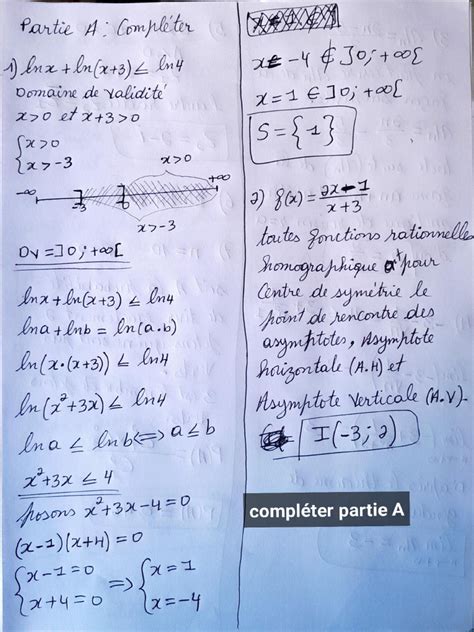 Partie A : Compléter
1) ln x + ln(x+3) ≤ ln 4
Domaine de validité
x>0 et x+3>0
{x>0
{x>-3
x>0
-∞ -3 0 +∞
x>-3
Dv = ]0; +∞[
ln x + ln(x+3) ≤ ln 4
ln a + ln b = ln(a·b)
ln(x·(x+3)) ≤ ln 4
ln(x²+3x) ≤ ln 4
ln a ≤ ln b ⟺ a ≤ b
x²+3x ≤ 4
posons x²+3x-4=0
(x-1)(x+4)=0
{x-1=0 ⟹ {x=1
{x+4=0 {x=-4
x=-4 ∉ ]0; +∞[
x=1 ∈ ]0; +∞[
S={1}
2) f(x) = 2x-1 / x+3
toutes fonctions rationnelles
homographique a pour
Centre de symétrie le
point de rencontre des
asymptotes, Asymptote
horizontale (A.H) et
Asymptote Verticale (A.V).
I(-3; 2)
compléter partie A